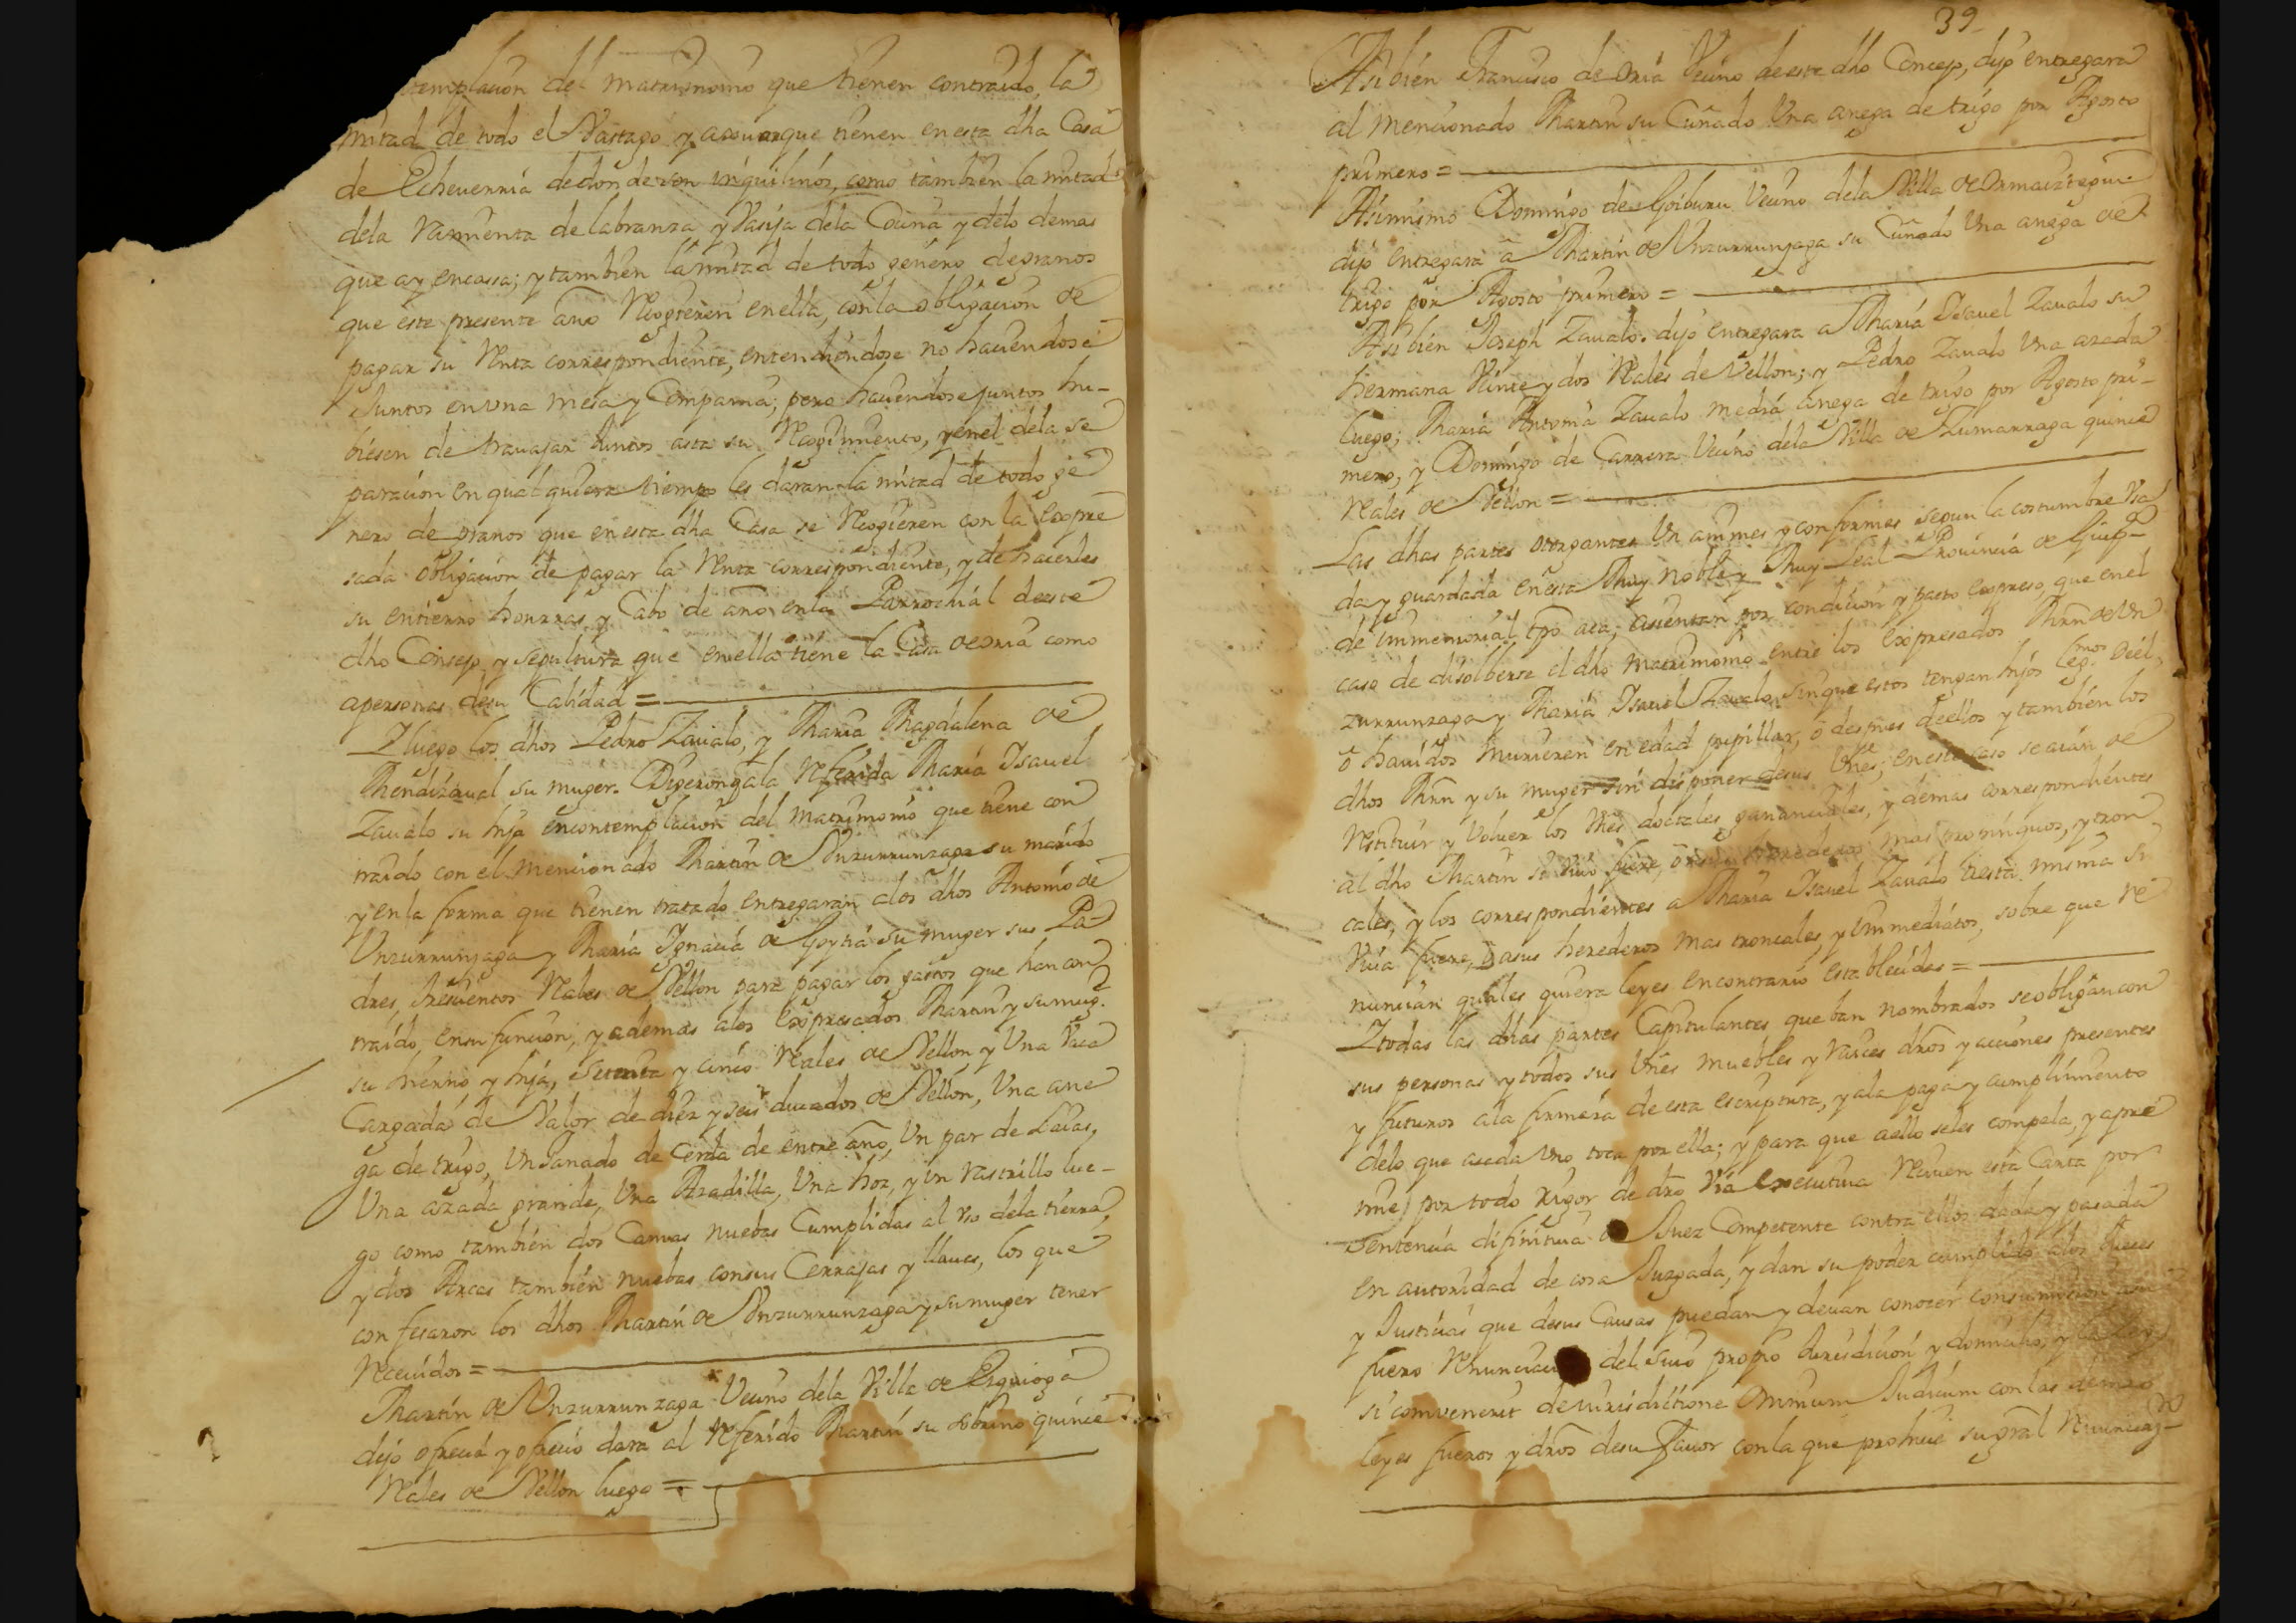 templacion del matrimonio que tienen contraido, la
mitad de todo el Vastago y axouar que tienen en esta dha Casa
de Echeuerria de donde son inquilinos, como tambien la mitad
dela rramienta de labranza y Vasija dela Cocina y delo demas
que ay encassa; y tambien la mitad de todo genero degranos
que este presente año Recogieren enella, conla obligacion de
pagar su Renta correspondiente, entendiendose no hauiendose
Juntos en una mesa y Compañia; pero hauiendose juntos hu-
biesen de trauajar Juntos asta su Recogimiento, y enel dela se
paracion en qual quiera tiempo les daran la mitad de todo ge
nero de granos que en esta dha Casa se Recogieren con la Expre
sada obligacion de pagar la Renta correspondiente, y de hacerles
su entierro honrras y Cabo de año enla Parrochial deeste
dho Consejo y sepultura que enella tiene la Casa de oria como
apersonas desu Calidad =
I luego los dhos Pedro Zaualo, y Maria Magdalena de
Mendizaual su muger. Digeron q̄ ala Referida Maria Isauel
Zaualo su hija encontemplacion del matrimonio que tiene con
traido con el mencionado Martin de Vnzurrunzaga su marido
y en la forma que tienen tratado entregaran alos dhos Antonio de
Vnzurrunzaga y Maria Ignacia de Goytia su muger sus Pa-
dres, trescientos Reales de Vellon para pagar los gastos que han con
traido, ensu funcion, y ademas alos Expresados Martin y su mug.r
su hierno, y hija, setenta y cinco Reales de Vellon y Una Vaca
Cargada de Valor de diez y seis ducados de Vellon, Una ane
ga de trigo, Un Ganado de Cerda de entre año, Un par de Laias,
Una azada grande, Una Azadilla, Una hoz, y Un rastrillo lue-
go como tambien dos Camas nuebas Cumplidas al uso dela tierra,
y dos Arcas tambien nuebas consus Cerrajas y llaues, los que
confesaron los dhos Martin de Vnzurrunzaga y su muger tener
Receuidos =
Martin de Vnzurrunzaga Vecino dela Villa de Ezquioga
dijo ofrecia y ofrecio dara al Referido Martin su sobrino quince
Reales de Vellon luego =
39
Asibien Francisco de Oria Vecino de este dho Concejo, dijo entregara
al mencionado Martin su Cuñado Una anega de trigo por Agosto
primero =
Asimismo Domingo de Goiburu Vecino dela Villa de Ormaiztegui
dijo entregara â Martin de Vnzurrunzaga su Cuñado Una anega de
trigo por Agosto primero =
Asibien Joseph Zaualo. dijo entregara a Maria Isauel Zaualo su
hermana Veinte y dos Reales de Vellon; y Pedro Zaualo Una azada
luego; Maria Antonia Zaualo media anega de trigo por Agosto pri-
mero, y Domingo de Carrera Vecino dela Villa de Zumarraga quince
Reales de Vellon =
Las dhas partes otorgantes Un animes y conformes segun la costumbre Vsa
da y guardada en esta Muy noble y Muy Leal Prouincia de Guip.ª
de Immemorial tpō aca; asientan por condicion y pacto Expreso que enel
caso de disolberse el dho matrimonio entre los Expresados Mrn de Vn
zurrunzaga y Maria Isauel Zaualo, sin que estos tengan hijos Leg.mos deel,
ô hauidos Murieren en edad pupillar, ô despues deellos y tambien los
dhos Mrn y su muger sin disponer desus Vnēs; en este caso se aian de
Restituir y Voluer los Vnēs doctales gananciales, y demas correspondientes
al dho Martin si viuo fuere, ô asus herederos mas propinquos, y tron
cales, y los correspondientes a Maria Isauel Zaualo aesta misma si
Viua fuere, ô asus herederos mas troncales, y Immediatos, sobre que re
nuncian quales quiera leyes encontrario establecidas =
I todas las dhas partes Capitulantes, que ban nombrados se obligan con
sus personas y todos sus Vnēs muebles y raices drōs y acciones presentes
y futuros ala firmeza de esta escriptura, y ala paga y cumplimiento
delo que acada Uno toca por ella; y para que aello seles compela, y apre
mie por todo rigor de drō Via Executiua Reciuen esta Carta por
Sentencia difinitiua de Juez Competente contra ellos dada y pasada
en autoridad de cosa Juzgada, y dan su poder cumplido alos Jueces
y Justicias que desus Causas puedan y deuan conocer consumision asu
fuero Renunciaron del suio propio Jurisdicion y domicilio, y la Ley
si comvenerit de Iurisdictione Omnium Judicum con las demas
leyes fueros y drōs desu fauor conla que prohiue su gral Renuncia-